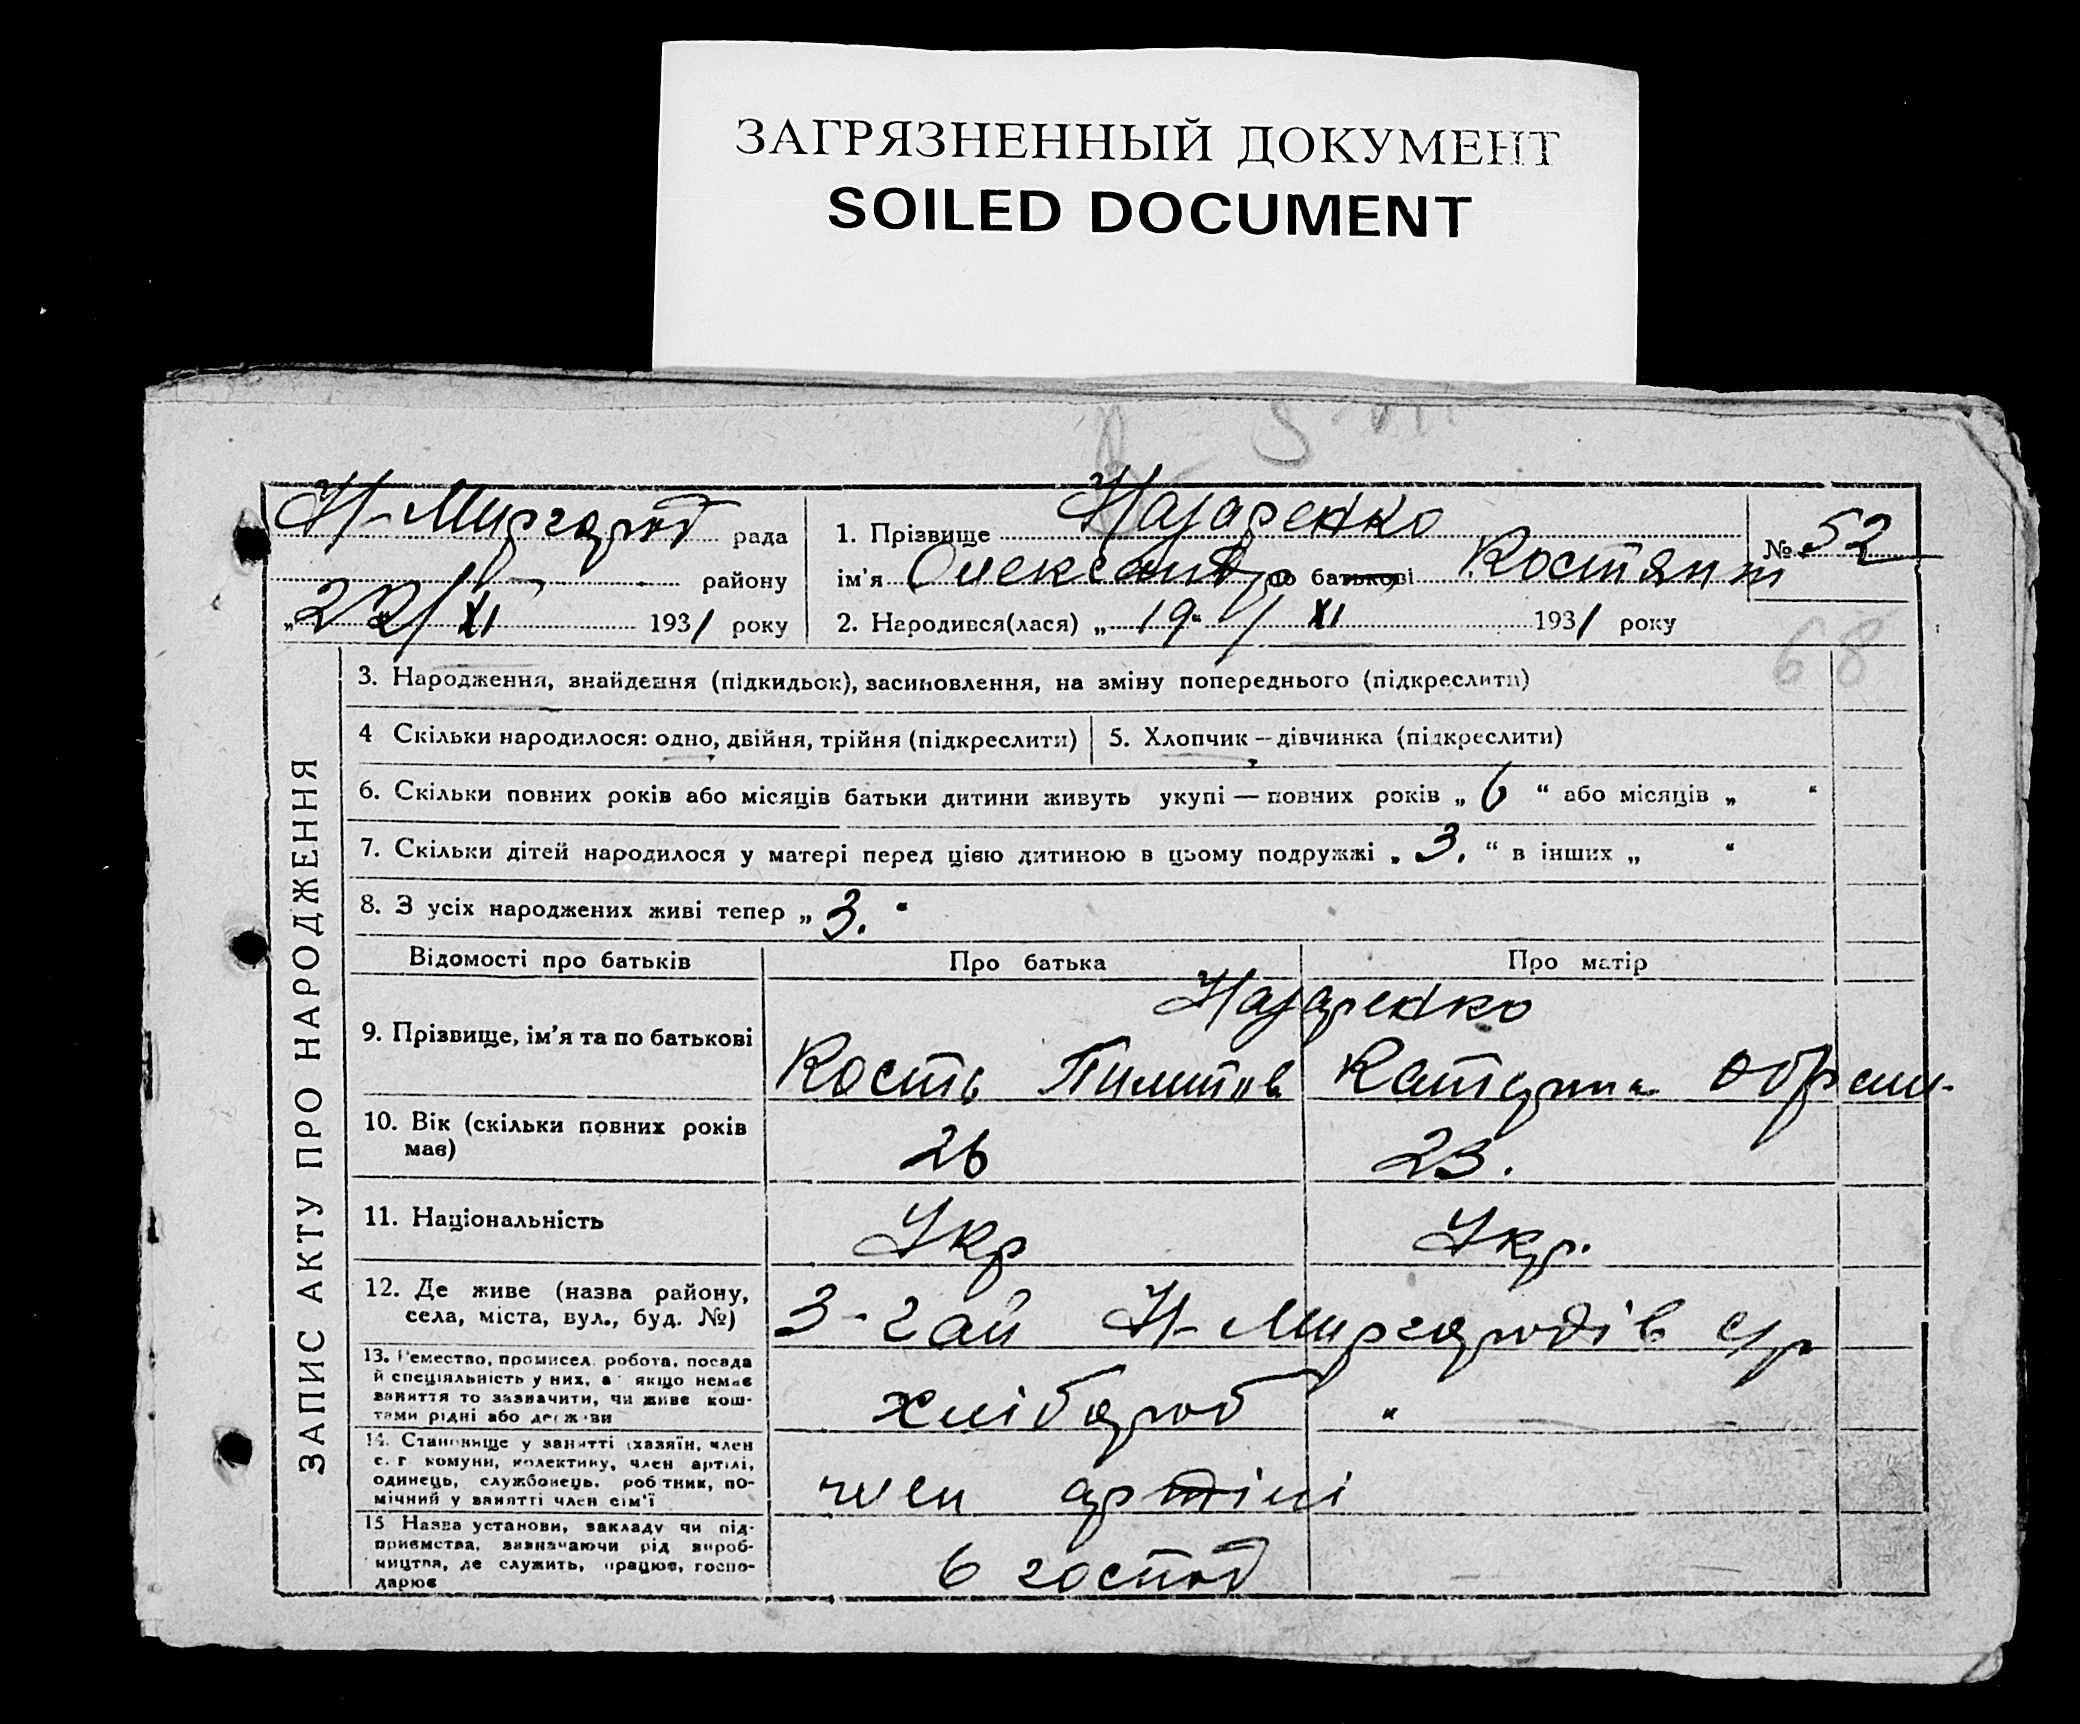 ЗАГРЯЗНЕННЫЙ ДОКУМЕНТ
SOILED DOCUMENT
Н-Миргород рада
району
„22/XI 1931 року
1. Прізвище Назаренко
ім'я Олександр по батькові Костянт
№ 52
2. Народився(лася) „19“/XI 1931 року
68
ЗАПИС АКТУ ПРО НАРОДЖЕННЯ
3. Народження, знайдення (підкидьок), засиновлення, на зміну попереднього (підкреслити)
4 Скільки народилося: одно, двійня, трійня (підкреслити)
5. Хлопчик – дівчинка (підкреслити)
6. Скільки повних років або місяців батьки дитини живуть укупі — повних років „ 6 “ або місяців „ “
7. Скільки дітей народилося у матері перед цією дитиною в цьому подружжі „ 3. “ в інших „ “
8. З усіх народжених живі тепер „ 3. “
Відомості про батьків Про батька Про матір
Назаренко
9. Прізвище, ім'я та по батькові Кость Катерина
10. Вік (скільки повних років
має) 26 23.
11. Національність Укр Укр.
12. Де живе (назва району,
села, міста, вул., буд. №) З-гай Н-Миргородів с/р
13. Ремество, промисел, робота, посада
й спеціяльність у них, а якщо немає
заняття то зазначити, чи живе кош-
тами рідні або держави хлібороб "
14. Становище у занятті (хазяїн, член
с. г. комуни, колективу, член артілі,
одинець, службовець, робітник, по-
мічний у занятті член сім'ї член артілі
15 Назва установи, закладу чи під-
приємства, зазначаючи рід вироб-
ництва, де служить, працює, госпо-
дарює в господ